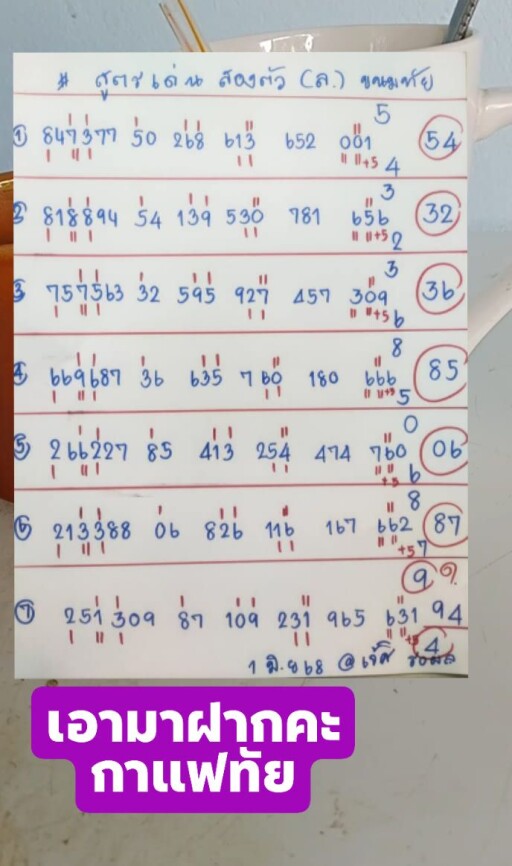 # สูตรเด่น สองตัว (ล.) ขนมทัย
① 847377 50 268 613 652 001 +5 5 4 54
② 818894 54 139 530 781 656 +5 3 2 32
③ 757563 32 595 927 457 309 +5 3 6 36
④ 669687 36 635 760 180 666 +5 8 5 85
⑤ 266227 85 413 254 474 760 +5 0 6 06
⑥ 213388 06 826 116 167 662 +5 8 7 87
⑦ 251309 87 109 231 965 631 +5 9 ? 94 4
1 มิ.ย 68 @
เอามาฝากคะ
กาแฟทัย